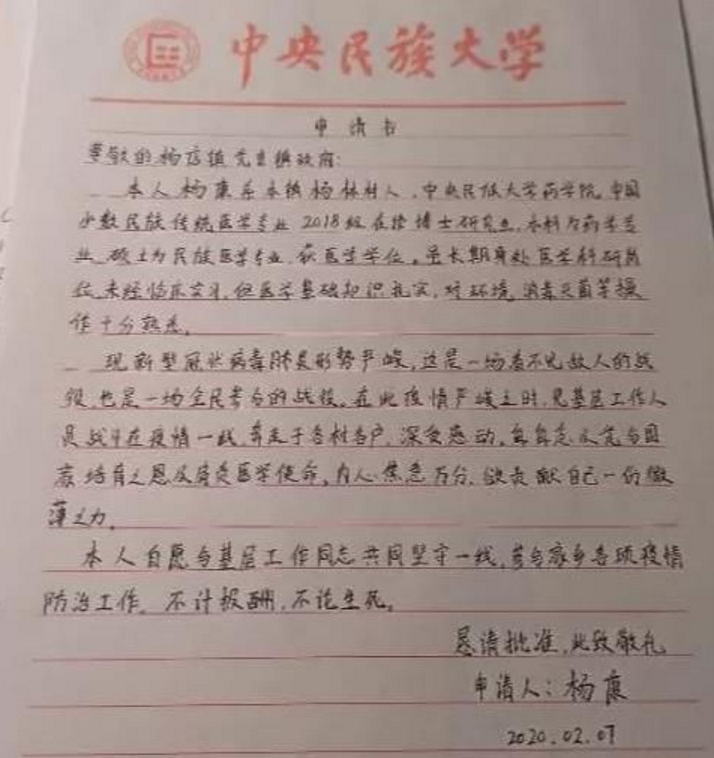 中央民族大学
申请书
尊敬的杨店镇党委镇政府：
本人杨康系本镇杨林村人，中央民族大学药学院，中国
少数民族传统医学专业2018级在读博士研究生，本科为药学专
业，硕士为民族医学专业，获医学学位，虽长期身处医学科研岗
位，未经临床实习，但医学基础知识扎实，对环境消毒灭菌等操
作十分熟悉。
现新型冠状病毒肺炎形势严峻，这是一场看不见敌人的战
役，也是一场全民参与的战役。在此疫情严峻之时，见基层工作人
员战斗在疫情一线，奔走于各村各户，深受感动。每每念及党与国
家培育之恩及肩负医学使命，内心焦急万分，欲贡献自己一份微
薄之力。
本人自愿与基层工作同志共同坚守一线，参与家乡各项疫情
防治工作。不计报酬，不论生死。
恳请批准，此致敬礼
申请人：杨康
2020.02.07